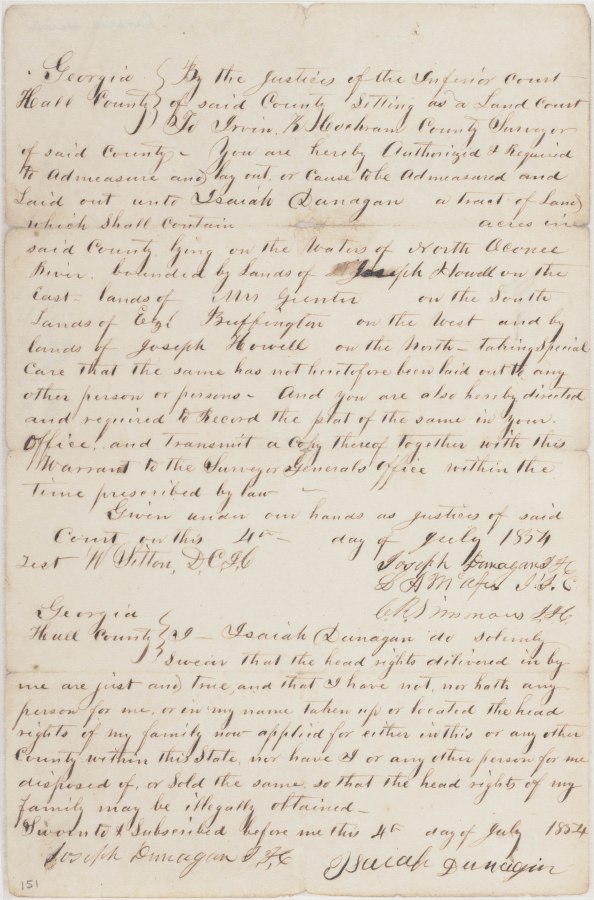 Georgia } By the Justices of the Inferior Court
Hall County } of said County Sitting as a Land Court
To Irvin K Cochram County Surveyor
of said County - You are hereby Authorized & Required
to Admeasure and lay out or Cause to be Admeasured and
Laid out unto Isaiah Dunagan a tract of Land
which Shall Contain acres in
said County lying on the Waters of North Oconee
River bounded by Lands of Joseph Howell on the
East - lands of Mrs on the South
Lands of Ezl Buffington on the West and by
lands of Joseph Howell on the North - taking Special
Care that the same has not heretofore been laid out to any
other person or persons - And you are also hereby directed
and required to Record the plat of the same in Your
Office, and transmit a Copy thereof together with this
Warrant to the Surveyor Generals Office within the
time prescribed by law -
Given under our hands as Justices of said
Court on this 4th day of July 1854
Test W Sitton, D.C.I.C Joseph Dunagan J.I.C
J.I.C
C. R. Simmons J.I.C
Georgia }
Hall County } I - Isaiah Dunagan do solemnly
Swear that the head rights delivered in by
me are just and true, and that I have not, nor hath any
person for me, or in my name taken up or located the head
rights of my family now applied for either in this or any other
County within this State, nor have I or any other person for me
disposed of, or Sold the same, so that the head rights of my
family may be illegally obtained -
Sworn to & Subscribed before me this 4th day of July 1854
Joseph Dunagan J.I.C Isaiah Dunagin
151